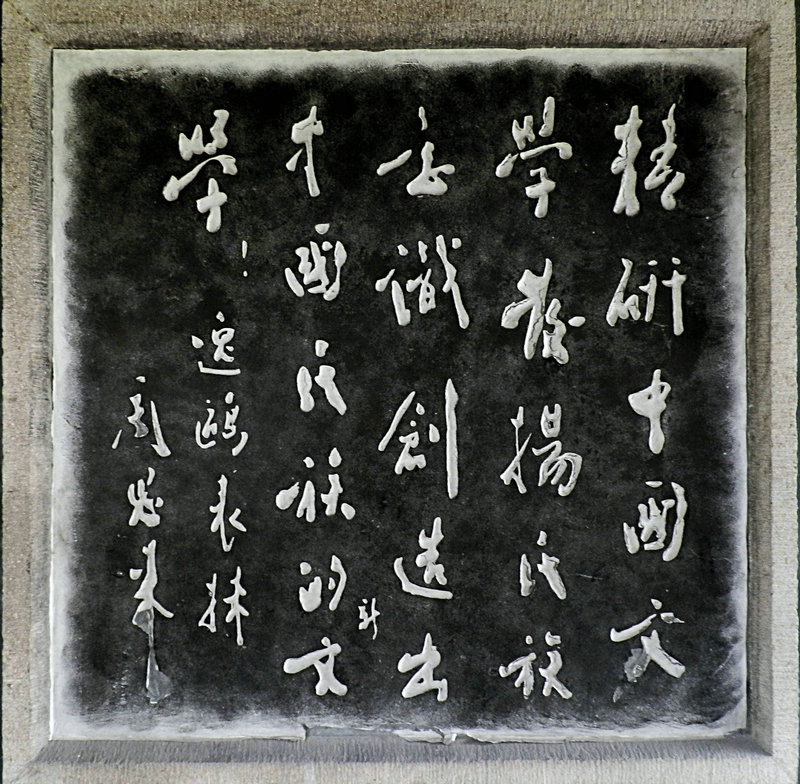 精研中國文
學發揚民族
意識創造出
中國民族的新文
學！
逸鷗表妹
周恩來